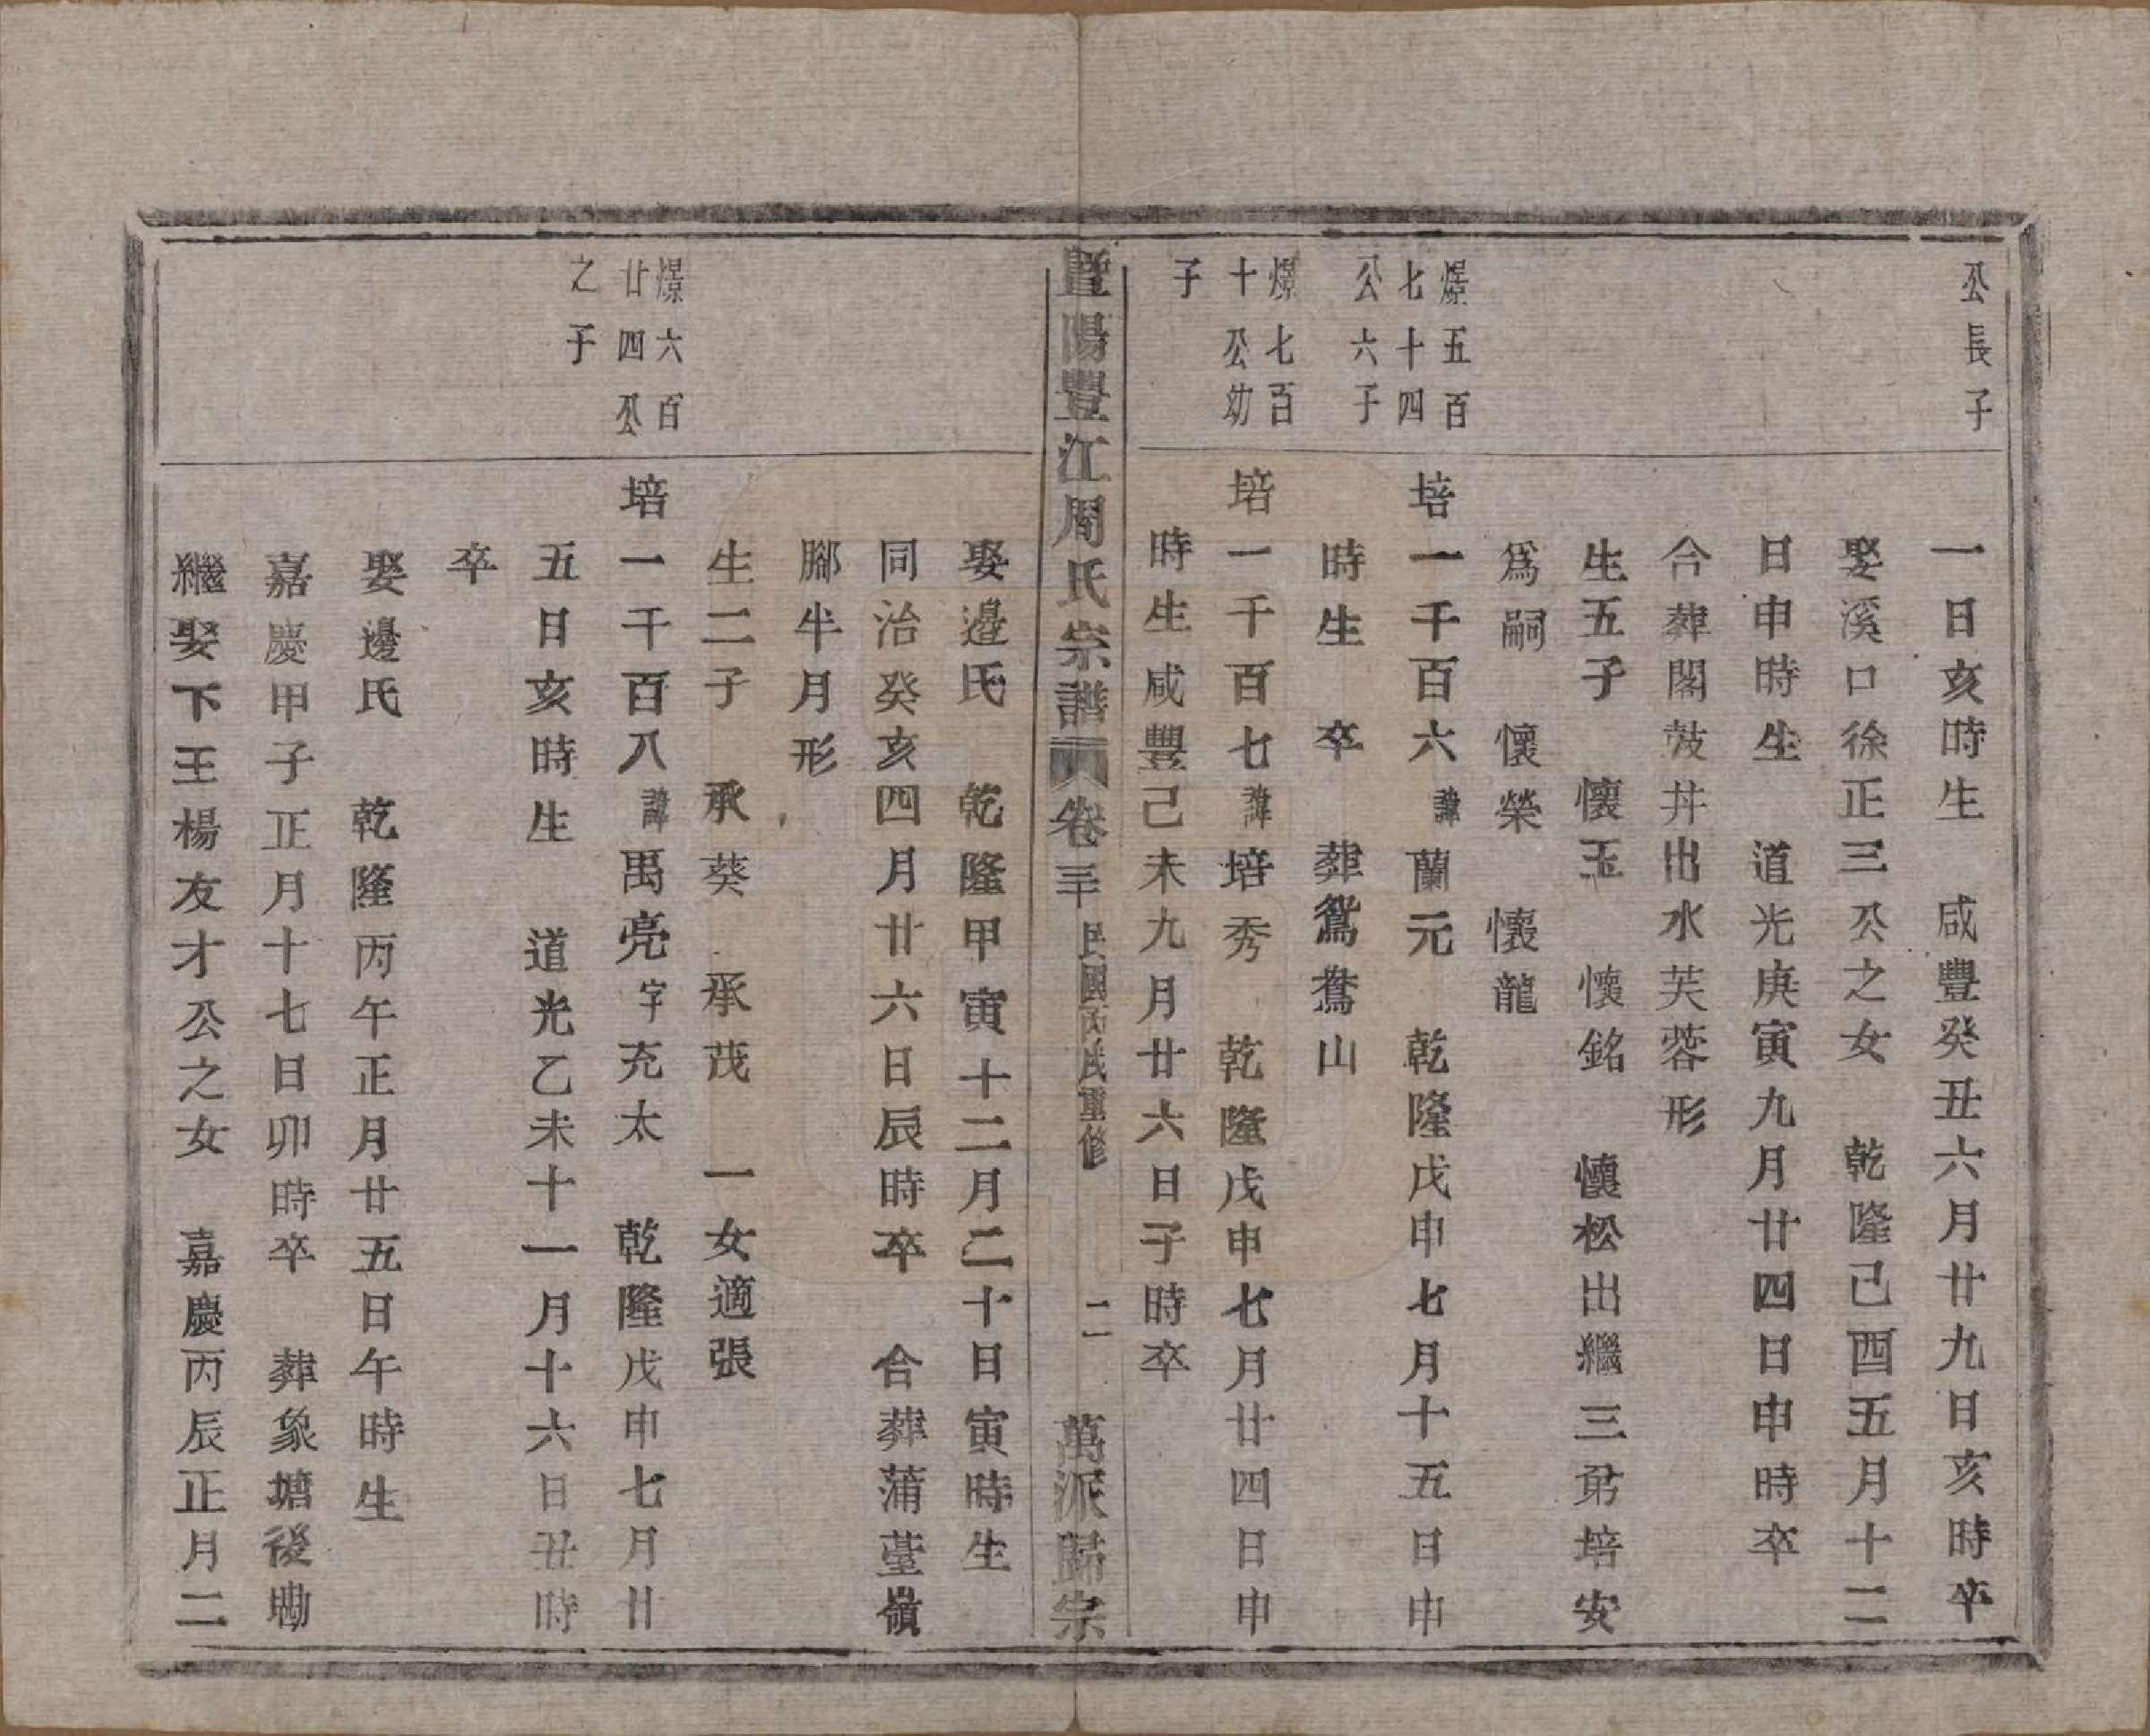 公長子
一日亥時生　咸豐癸丑六月廿九日亥時卒
娶溪口徐正三公之女　乾隆己酉五月十二
日申時生　道光庚寅九月廿四日申時卒
合葬閣鼓井出水芙蓉形
生五子　懷玉　懷銘　懷松出繼三弟培安
爲嗣　懷榮　懷龍
燝五百
七十四
公六子
培一千百六諱蘭元　乾隆戊申七月十五日申
時生　卒　葬鴛鴦山
燝七百
十公幼
子
培一千百七諱培秀　乾隆戊申七月廿四日申
時生咸豐己未九月廿六日子時卒
暨陽豐江周氏宗譜 卷三 民國丙戌重修 二 萬派歸宗
娶邉氏　乾隆甲寅十二月二十日寅時生
同治癸亥四月廿六日辰時卒　合葬蒲臺嶺
腳半月形
生二子　承葵　承茂　一女適張
燝六百
廿四公
之子
培一千百八諱禹亮字充太　乾隆戊申七月廿
五日亥時生　道光乙未十一月十六日丑時
卒
娶邊氏　乾隆丙午正月廿五日午時生
嘉慶甲子正月十七日卯時卒　葬象塘後
繼娶下王楊友才公之女　嘉慶丙辰正月二